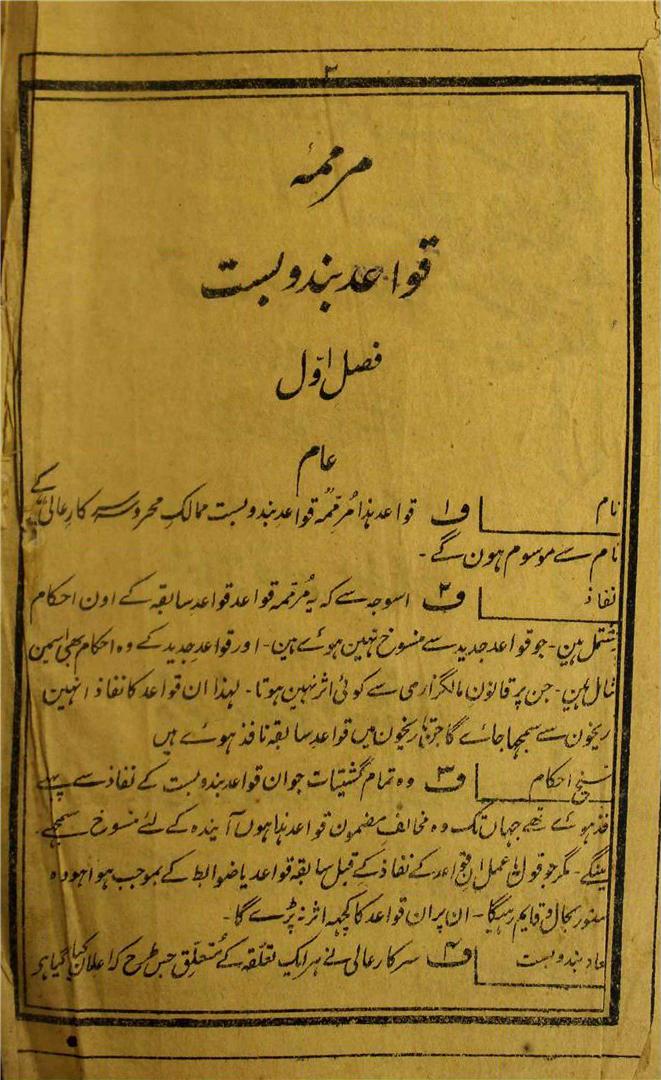 ۳
مرممہ
قواعد بندوبست
فصل اوّل
عام
نام ف۱ قواعد ہذا مُرمّمہ قواعد بندوبست ممالکِ محروسہ سرکارِ عالی کے
نام سے موسوم ہون گے۔
نفاذ ف۲ اسوجہ سے کہ یہ مُرمّمہ قواعد قواعدِ سابقہ کے اون احکام
شتمل ہین۔ جو قواعد جدید سے منسوخ نہین ہوئے ہین۔ اور قواعدِ جدید کے وہ احکام بھی اسمین
شامل ہین۔ جن پر قانونِ مالگزاری سے کوئی اثر نہین ہوتا۔ لہذا ان قواعد کا نفاذ انہین
ریخون سے سمجہا جائے گا جن تاریخون میں قواعدِ سابقہ نافذ ہوئے ہیں
نسیخ احکام ف۳ وہ تمام گشتیات جو ان قواعد بندوبست کے نفاذ سے پہلے
فذ ہوئے تھے جہاں تک وہ مخالف مضمون قواعد ہذا ہوں آیندہ کے لئے منسوخ سمجھے
ئینگے۔ مگر جو قول یا عمل ان قواعد کے نفاذ کے قبل سابقہ قواعد یا ضوابط کے بموجب ہوا ہو وہ
ستور بحال و قایم رہیگا۔ ان پر ان قواعد کا کچہہ اثر نہ پڑے گا۔
عاد بندوبست ف۴ سرکار عالی نے ہر ایک تعلّقہ کے مُتعلّق جس طرح کہ اعلان کیا گیا ہو